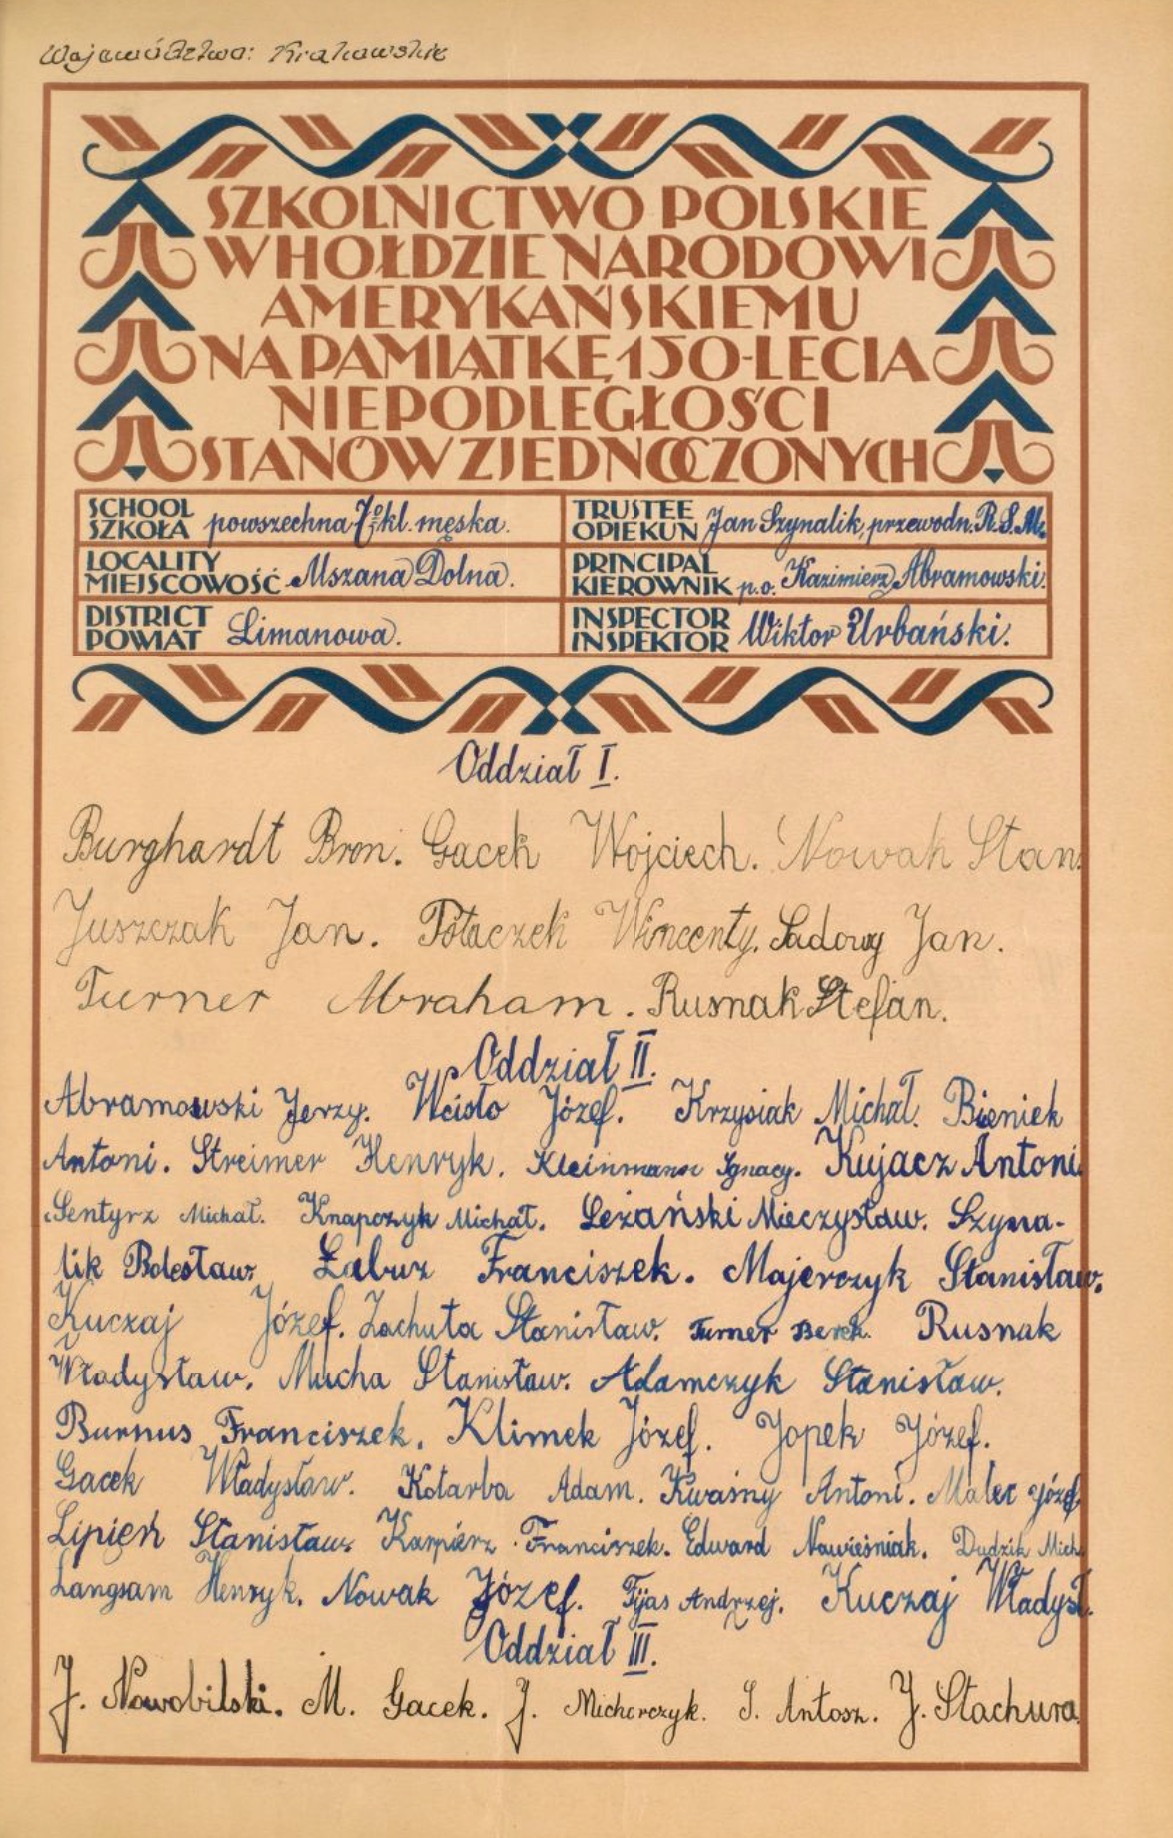 Województwo: Krakowskie
SZKOLNICTWO POLSKIE
W HOŁDZIE NARODOWI
AMERYKAŃSKIEMU
NA PAMIĄTKĘ 150-LECIA
NIEPODLEGŁOŚCI
STANÓW ZJEDNOCZONYCH
SCHOOL
SZKOŁA powszechna 7-o kl. męska.
TRUSTEE
OPIEKUN Jan Szynalik, przewodn. R.S.M.
LOCALITY
MIEJSCOWOŚĆ Mszana Dolna.
PRINCIPAL
KIEROWNIK p.o. Kazimierz Abramowski.
DISTRICT
POWIAT Limanowa.
INSPECTOR
INSPEKTOR Wiktor Urbański.
Oddział I.
Burghardt Bron. Gacek Wojciech. Nowak Stan.
Juszczak Jan. Potaczek Wincenty. Sadowy Jan.
Turner Abraham. Rusnak Stefan.
Oddział II.
Abramowski Jerzy. Wcisło Józef. Krzysiak Michał. Bieniek
Antoni. Streimer Henryk. Kleinmann Ignacy. Kujacz Antoni.
Sentyrz Michał. Knapczyk Michał. Leżański Mieczysław. Szyna-
lik Bolesław. Łabuz Franciszek. Majerczyk Stanisław.
Kuczaj Józef. Zachuta Stanisław. Turner Berek. Rusnak
Władysław. Mucha Stanisław. Adamczyk Stanisław.
Burnus Franciszek. Klimek Józef. Jopek Józef.
Gacek Władysław. Kotarba Adam. Kwaśny Antoni. Malec Józef
Lipień Stanisław. Karpierz Franciszek. Edward Nawieśniak. Dudzik Mich.
Langsam Henryk. Nowak Józef. Fijas Andrzej. Kuczaj Władysł.
Oddział III.
J. Nowobilski. M. Gacek. J. Michorczyk. S. Antosz. J. Stachura.